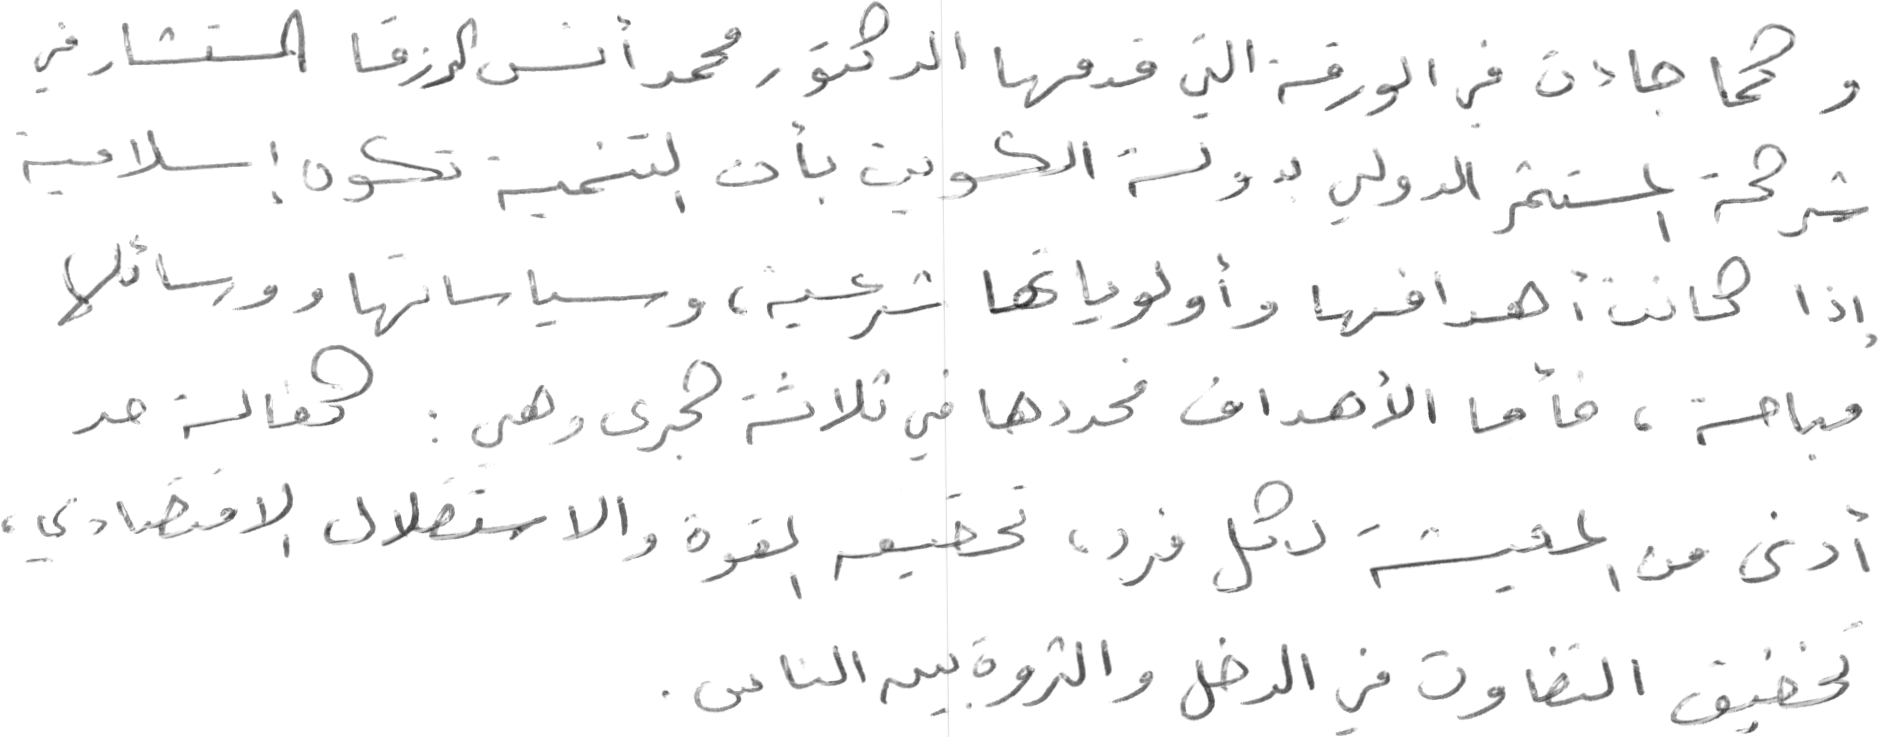 وكما جاءت في الورقة التي قدمها الدكتور محمد أنس الزرقا المستشار في
شركة المستثمر الدولي بدولة الكويت بأن التنمية تكون إسلامية
إذا كانت أهدافها وأولوياتها شرعية، وسياساتها ووسائلها
مباحة، فأما الأهداف فحددها في ثلاثة كبرى وهي : كفالة حد
أدنى من المعيشة لكل فرد، تحقيق القوة والاستقلال الاقتصادي،
تخفيف التفاوت في الدخل والثروة بين الناس.